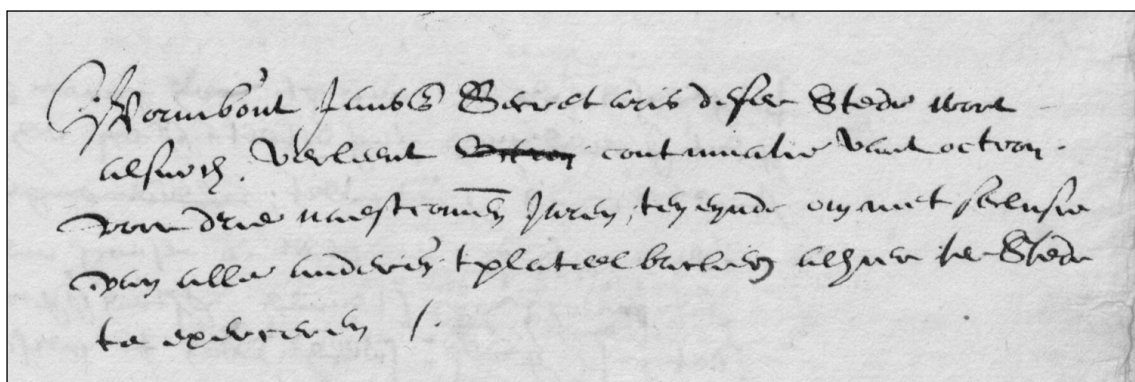 Wornbout Janss Secretaris deser Stede wort
alsnoch verleent continuatie vant octroy
voor drie naestcomen Jaren, ten eynde om met seclusie
van alle anderen tplateelbacken alhier ter Stede
te exerceren /.